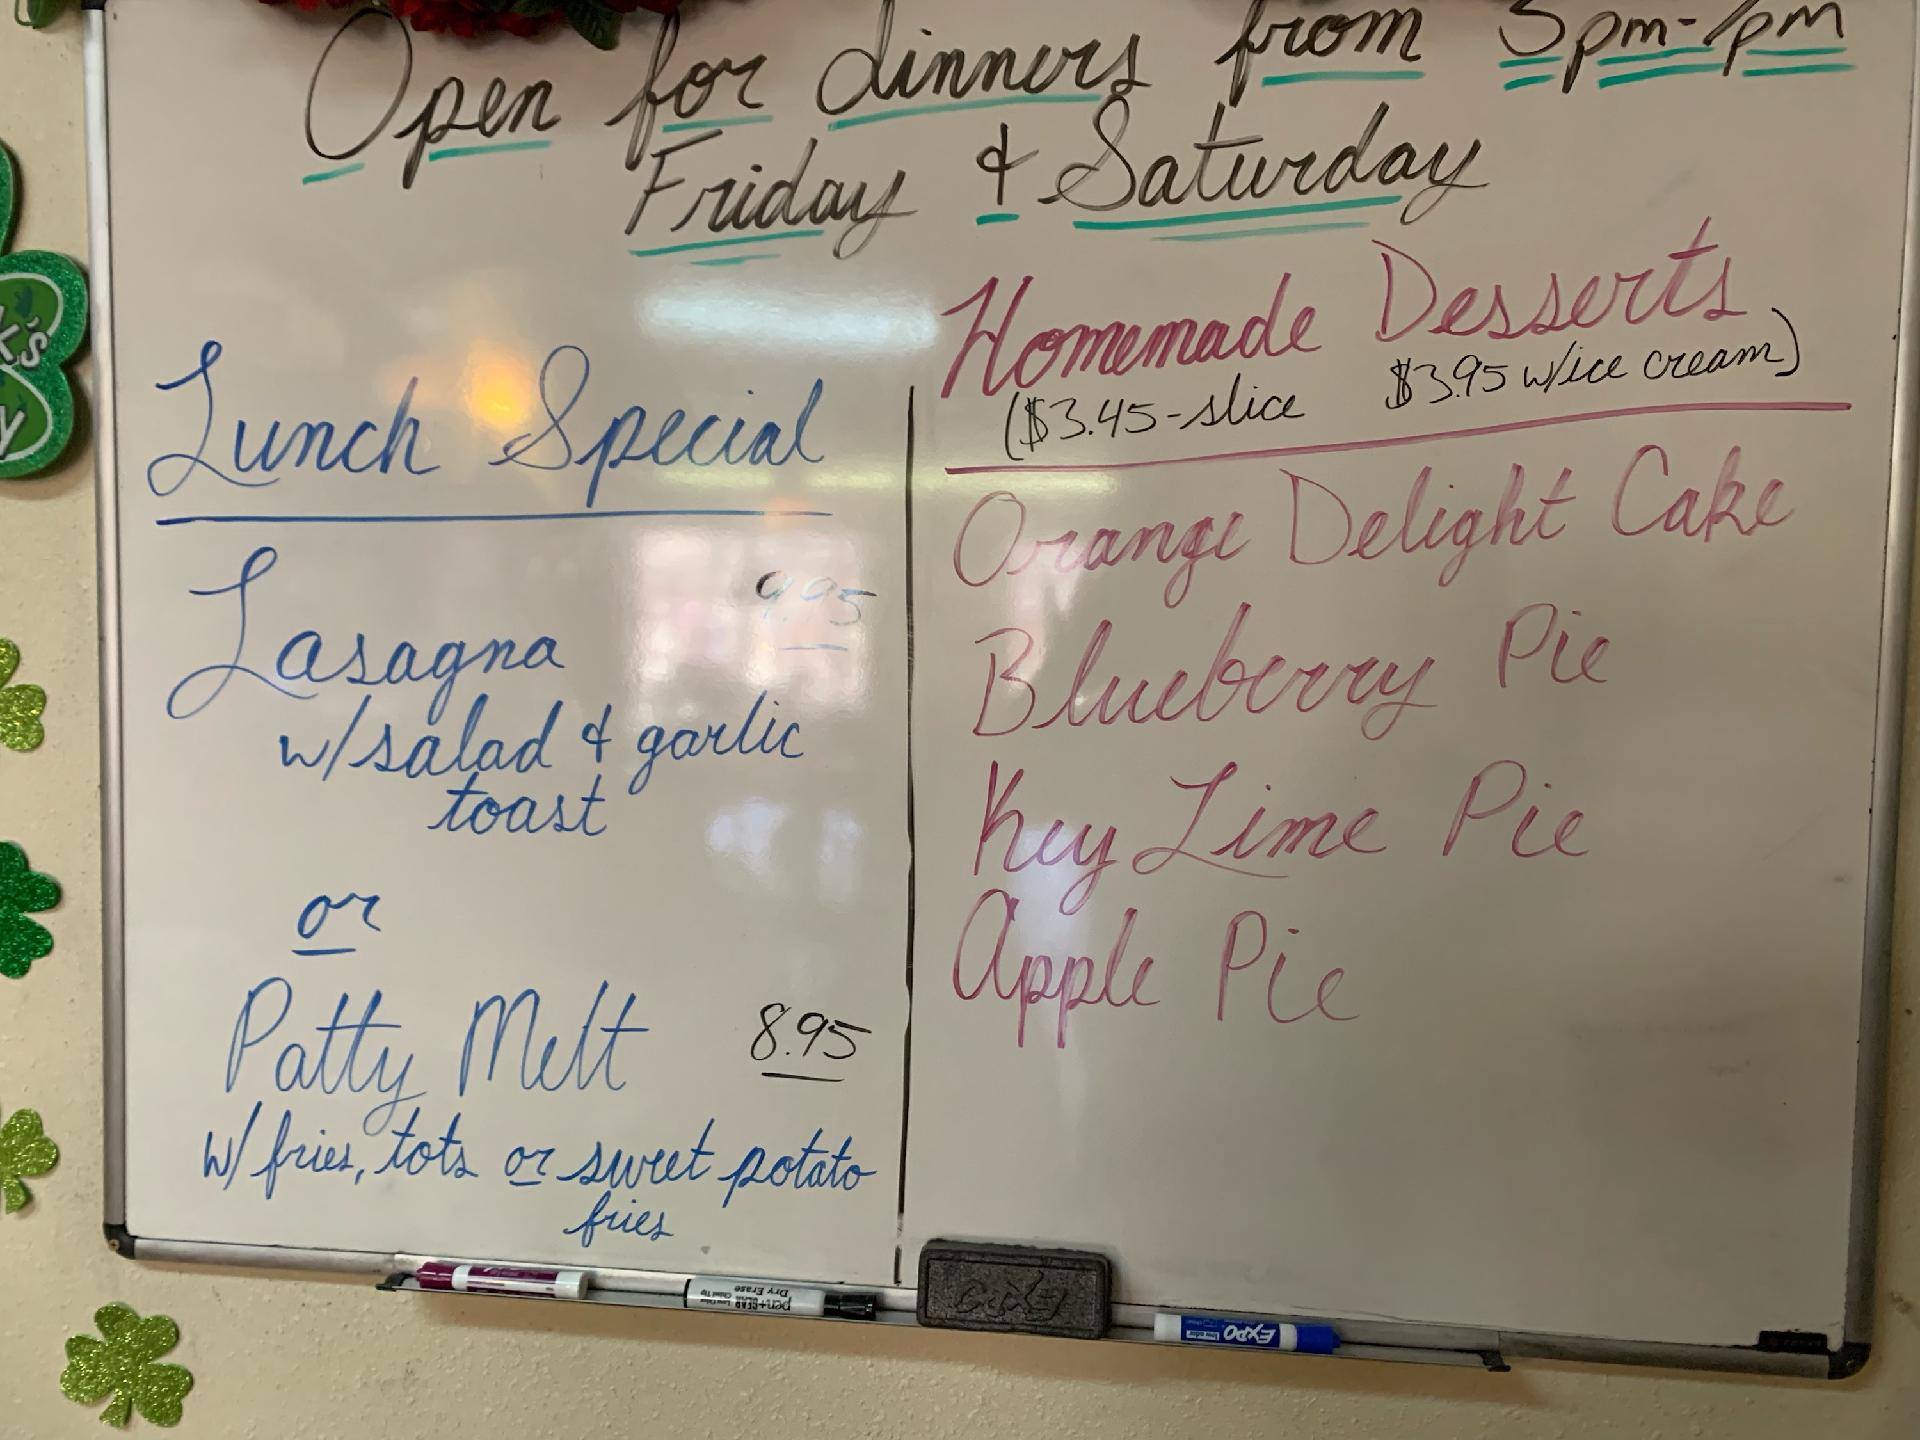 Open for dinners from 5pm-7pm
Friday & Saturday
Lunch Special
Lasagna 9.95
w/salad & garlic
toast
or
Patty Melt 8.95
w/ fries, tots or sweet potato
fries
Homemade Desserts
($3.45-slice $3.95 w/ice cream)
Orange Delight Cake
Blueberry Pie
Key Lime Pie
Apple Pie
k's
y
Dry Erase
EXPO